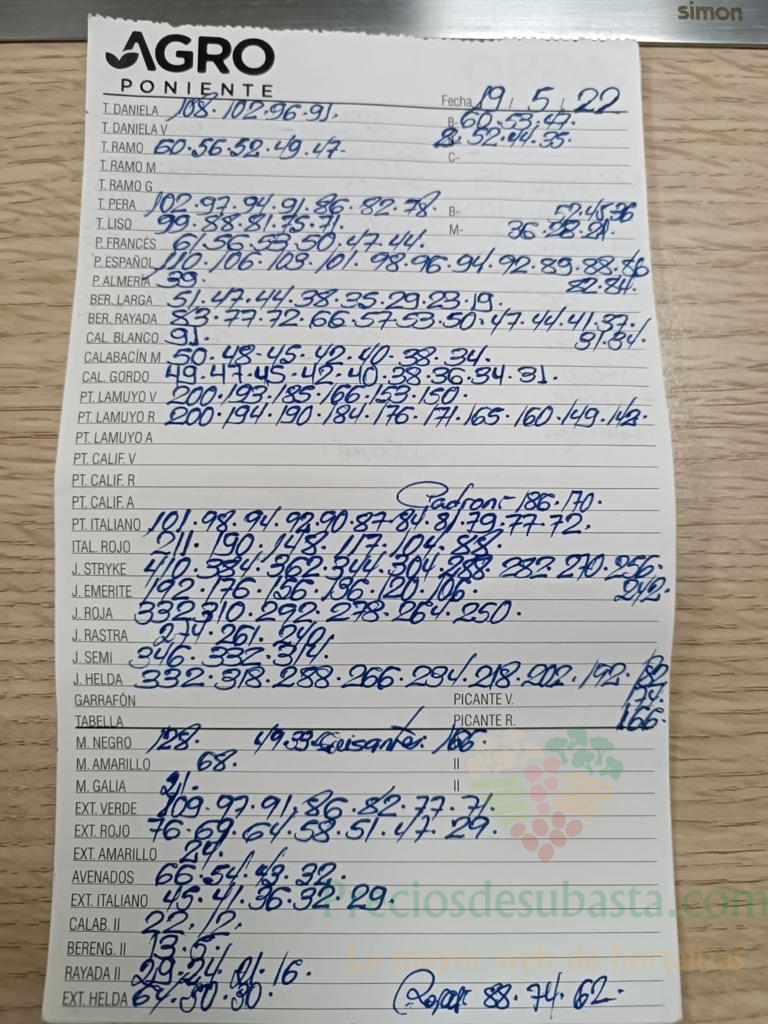 simon
AGRO
PONIENTE
Fecha 19 / 5 / 22
T. DANIELA 108. 102. 96. 91. B- 60. 53. 47.
T. DANELA V 52. 44. 35.
T. RAMO 60. 56. 52. 49. 47. C-
T. RAMO M
T. RAMO G
T. PERA 102. 97. 94. 91. 86. 82. 78. B- 52. 45. 36
T. LISO 99. 88. 81. 75. 71. M- 36. 28. 21.
P. FRANCÉS 61. 56. 53. 50. 47. 44.
P. ESPAÑOL 110. 106. 103. 101. 98. 96. 94. 92. 89. 88. 86
P. ALMERIA 39. 82. 84.
BER. LARGA 51. 47. 44. 38. 35. 29. 23. 19.
BER. RAYADA 83. 77. 72. 66. 57. 53. 50. 47. 44. 41. 37. /
CAL. BLANCO 91. 31. 34.
CALABACÍN M 50. 48. 45. 42. 40. 38. 34.
CAL. GORDO 49. 47. 45. 42. 40. 38. 36. 34. 31.
PT. LAMUYO V 200. 193. 185. 166. 153. 150.
PT. LAMUYO R 200. 194. 190. 184. 176. 171. 165. 160. 149. 142.
PT. LAMUYO A
PT. CALIF. V
PT. CALIF. R
PT. CALIF. A Padron: 186. 170.
PT. ITALIANO 101. 98. 94. 92. 90. 87. 84. 81. 79. 77. 72.
ITAL. ROJO 211. 190. 148. 117. 104. 88.
J. STRYKE 410. 384. 362. 344. 304. 288. 282. 270. 256.
J. EMERITE 192. 176. 156. 136. 120. 106. 242.
J. ROJA 332. 310. 292. 278. 264. 250.
J. RASTRA 274. 261. 240.
J. SEMI 346. 332. 314.
J. HELDA 332. 318. 288. 266. 294. 218. 202. 192. 182
GARRAFÓN PICANTE V. 174.
TABELLA PICANTE R. 166.
M. NEGRO 128. 49. 33 Guisante: 166.
M. AMARILLO 68. II
M. GALIA 21. II
EXT. VERDE 109. 97. 91. 86. 82. 77. 71.
EXT. ROJO 76. 69. 64. 58. 51. 47. 29.
EXT. AMARILLO 24.
AVENADOS 66. 54. 49. 32.
EXT. ITALIANO 45. 41. 36. 32. 29.
Preciosdesubasta.com
CALAB. II 22. 12.
BERENG. II 13. 5.
La mayor web de hortalizas
RAYADA II 29. 24. 21. 16.
EXT. HELDA 64. 50. 30. 88. 74. 62.